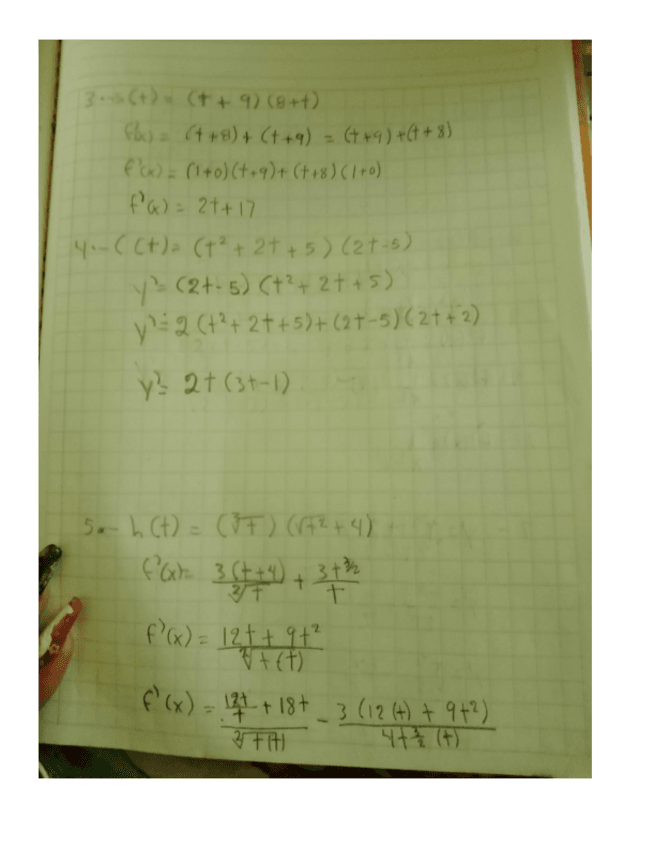 3.-s(t)= (t + 9)(8+t)
f(x)= (t+8)+(t+9) = (t+9)+(t+8)
f'(x)= (1+0)(t+9)+(t+8)(1+0)
f'(x)= 2t+17
4.- C(t)= (t²+2t+5)(2t-5)
y'= (2t-5)(t²+2t+5)
y'= 2(t²+2t+5)+(2t-5)(2t+2)
y'= 2t(3t-1)
5.- h(t) = (∛t)(√t²+4)
f'(x)= 3(t+4)/∛t + 3t^3/2/t
f'(x) = 12t+9t²/√t(t)
f'(x) = 12t/t + 18t/∛t(t) - 3(12(t)+9t²)/4t^3/2(t)